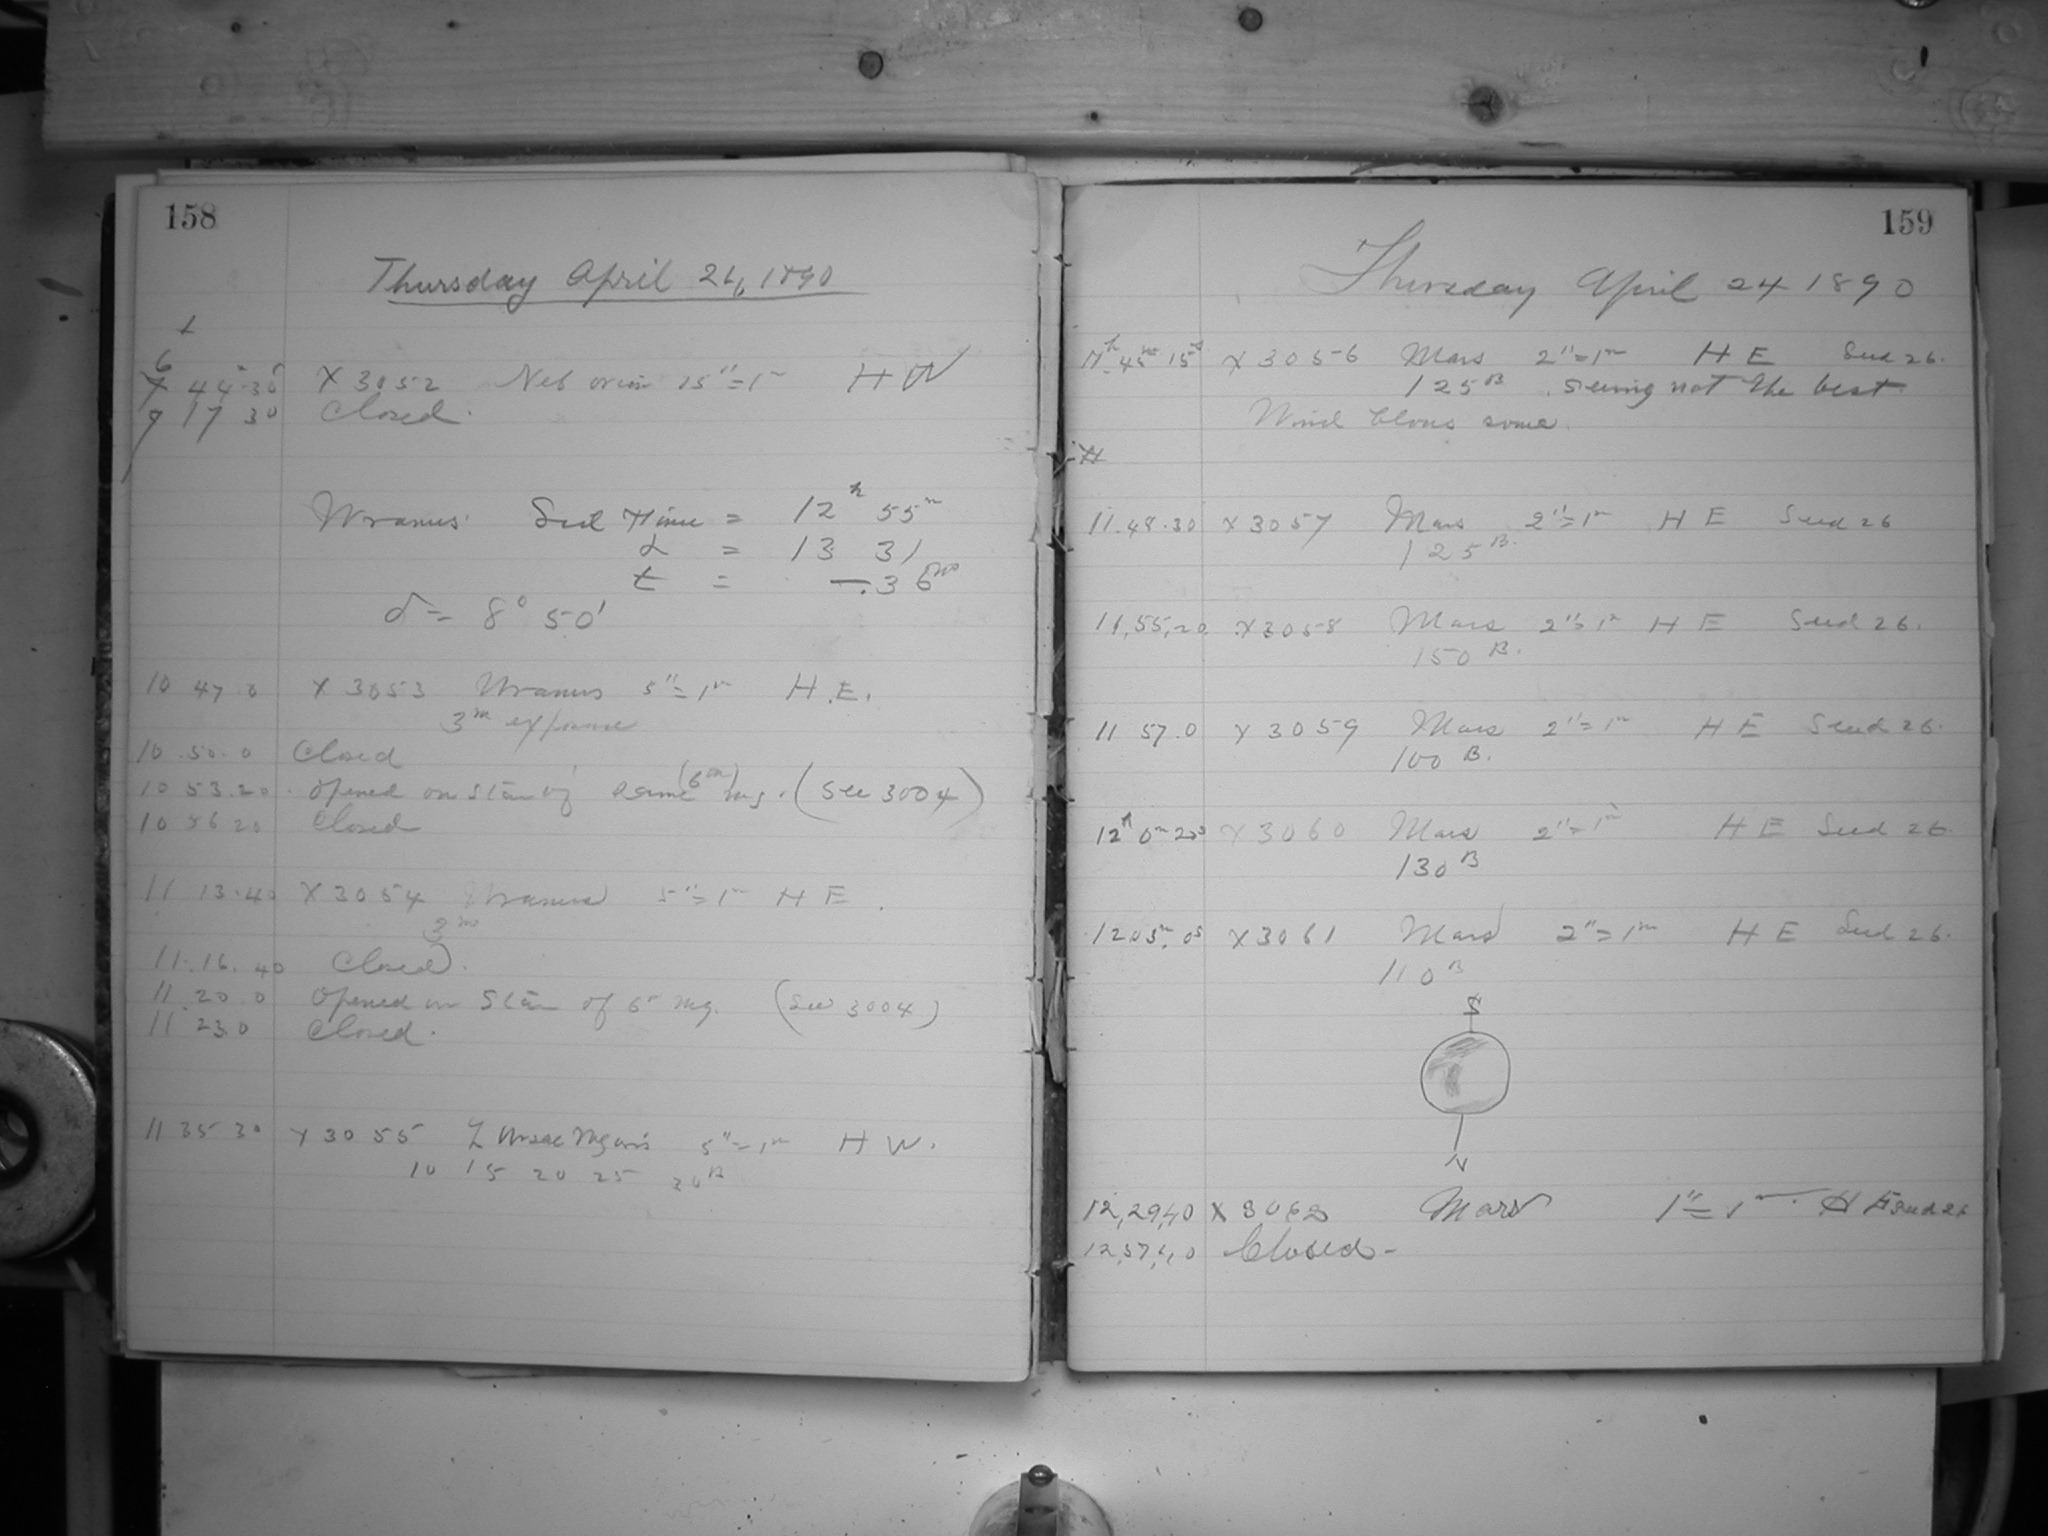 158
Thursday April 24, 1890
t
6
7 44 30 X 3052 Neb orion 25"=1m H W
9 17 30 Closed.
Uranus Sid Time = 12h 55m
α = 13 31
t = -.36m
δ = 8° 50'
10 47 0 X 3053 Uranus 5"=1m H.E.
3m exposure
10 50.0 Closed
10 53.20. Opened on Star of same (6m) mg. (See 3004)
10 56 20 Closed
11 13.40 X 3054 Uranus 5"=1m H E.
3m
11.16.40 Closed.
11 20 0 Opened on Star of 6 mg. (See 3004)
11 23.0 Closed.
11 35 30 X 3055 ζ Ursae Majoris 5"=1m H W.
10 15 20 25 30B
159
Thursday April 24 1890
11h 45m 15s X 3056 Mars 2"=1m H E Seed 26.
125B. Seeing not the best.
Wind blows some.
11.48.30 X 3057 Mars 2"=1m H E Seed 26
125B.
11,55,20 X 3058 Mars 2"=1m H E Seed 26.
150 B.
11 57.0 X 3059 Mars 2"=1m H E Seed 26.
100 B.
12h 0m 20s X 3060 Mars 2"=1m H E Seed 26.
130B
12 05m 0s X 3061 Mars 2"=1m H E Seed 26.
110B
S
N
12,29,40 X 3062 Mars 1"=1m. H E Seed 26
Closed-